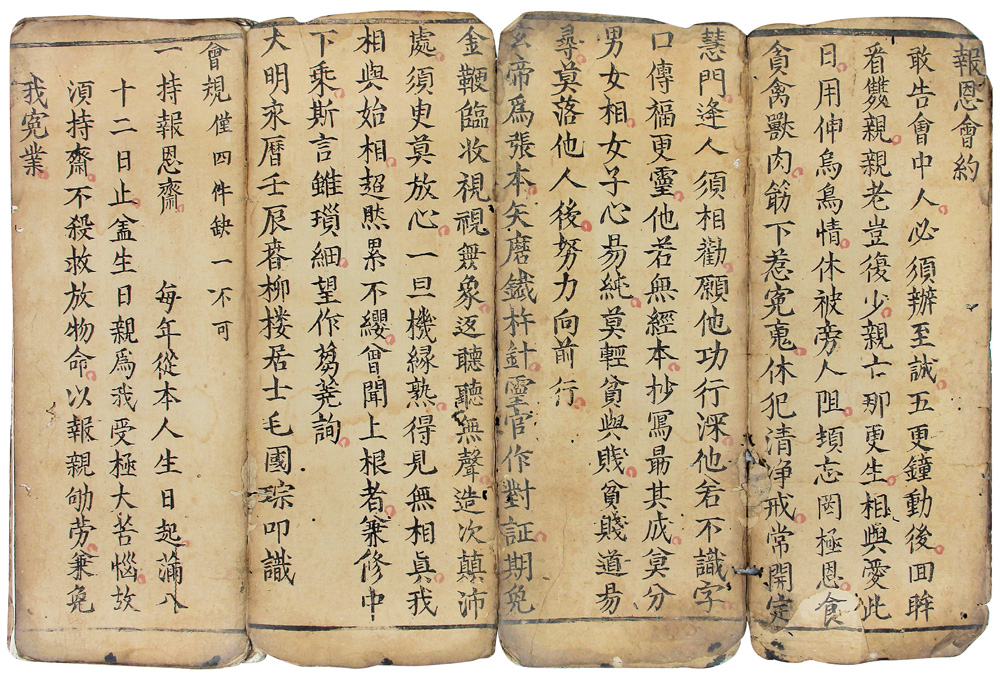 報恩會約
敢告會中人必須辦至誠五更鐘動後回眸
看雙親親老豈復少親亡那更生相與愛此
日用伸烏鳥情休被旁人阻頓忘罔極恩食
貪禽獸肉筋下惹寃䰟休犯清净戒常開定
慧門逢人須相勸願他功行深他若不識字
口傳福更靈他若無經本抄寫最其成莫分
男女相女子心易純莫輕貧與賤貧賤道易
尋莫落他人後努力向前行
玄帝爲張本矢磨鐵杵針靈官作對証期免
金鞭臨收視視無象返聽聽無聲造次顛沛
處須臾莫放心一旦機緣熟得見無相眞我
相與始相超然累不纓曾聞上根者兼修中
下乘斯言雖瑣細望作芻蕘詢
大明來曆壬辰春柳楼居士毛國琮叩識
會規僅四件缺一不可
一持報恩齋 每年從本人生日起蒲八
十二日止盖生日親爲我受極大苦惱故
湏持齋不殺救放物命以報親劬劳兼免
我寃業